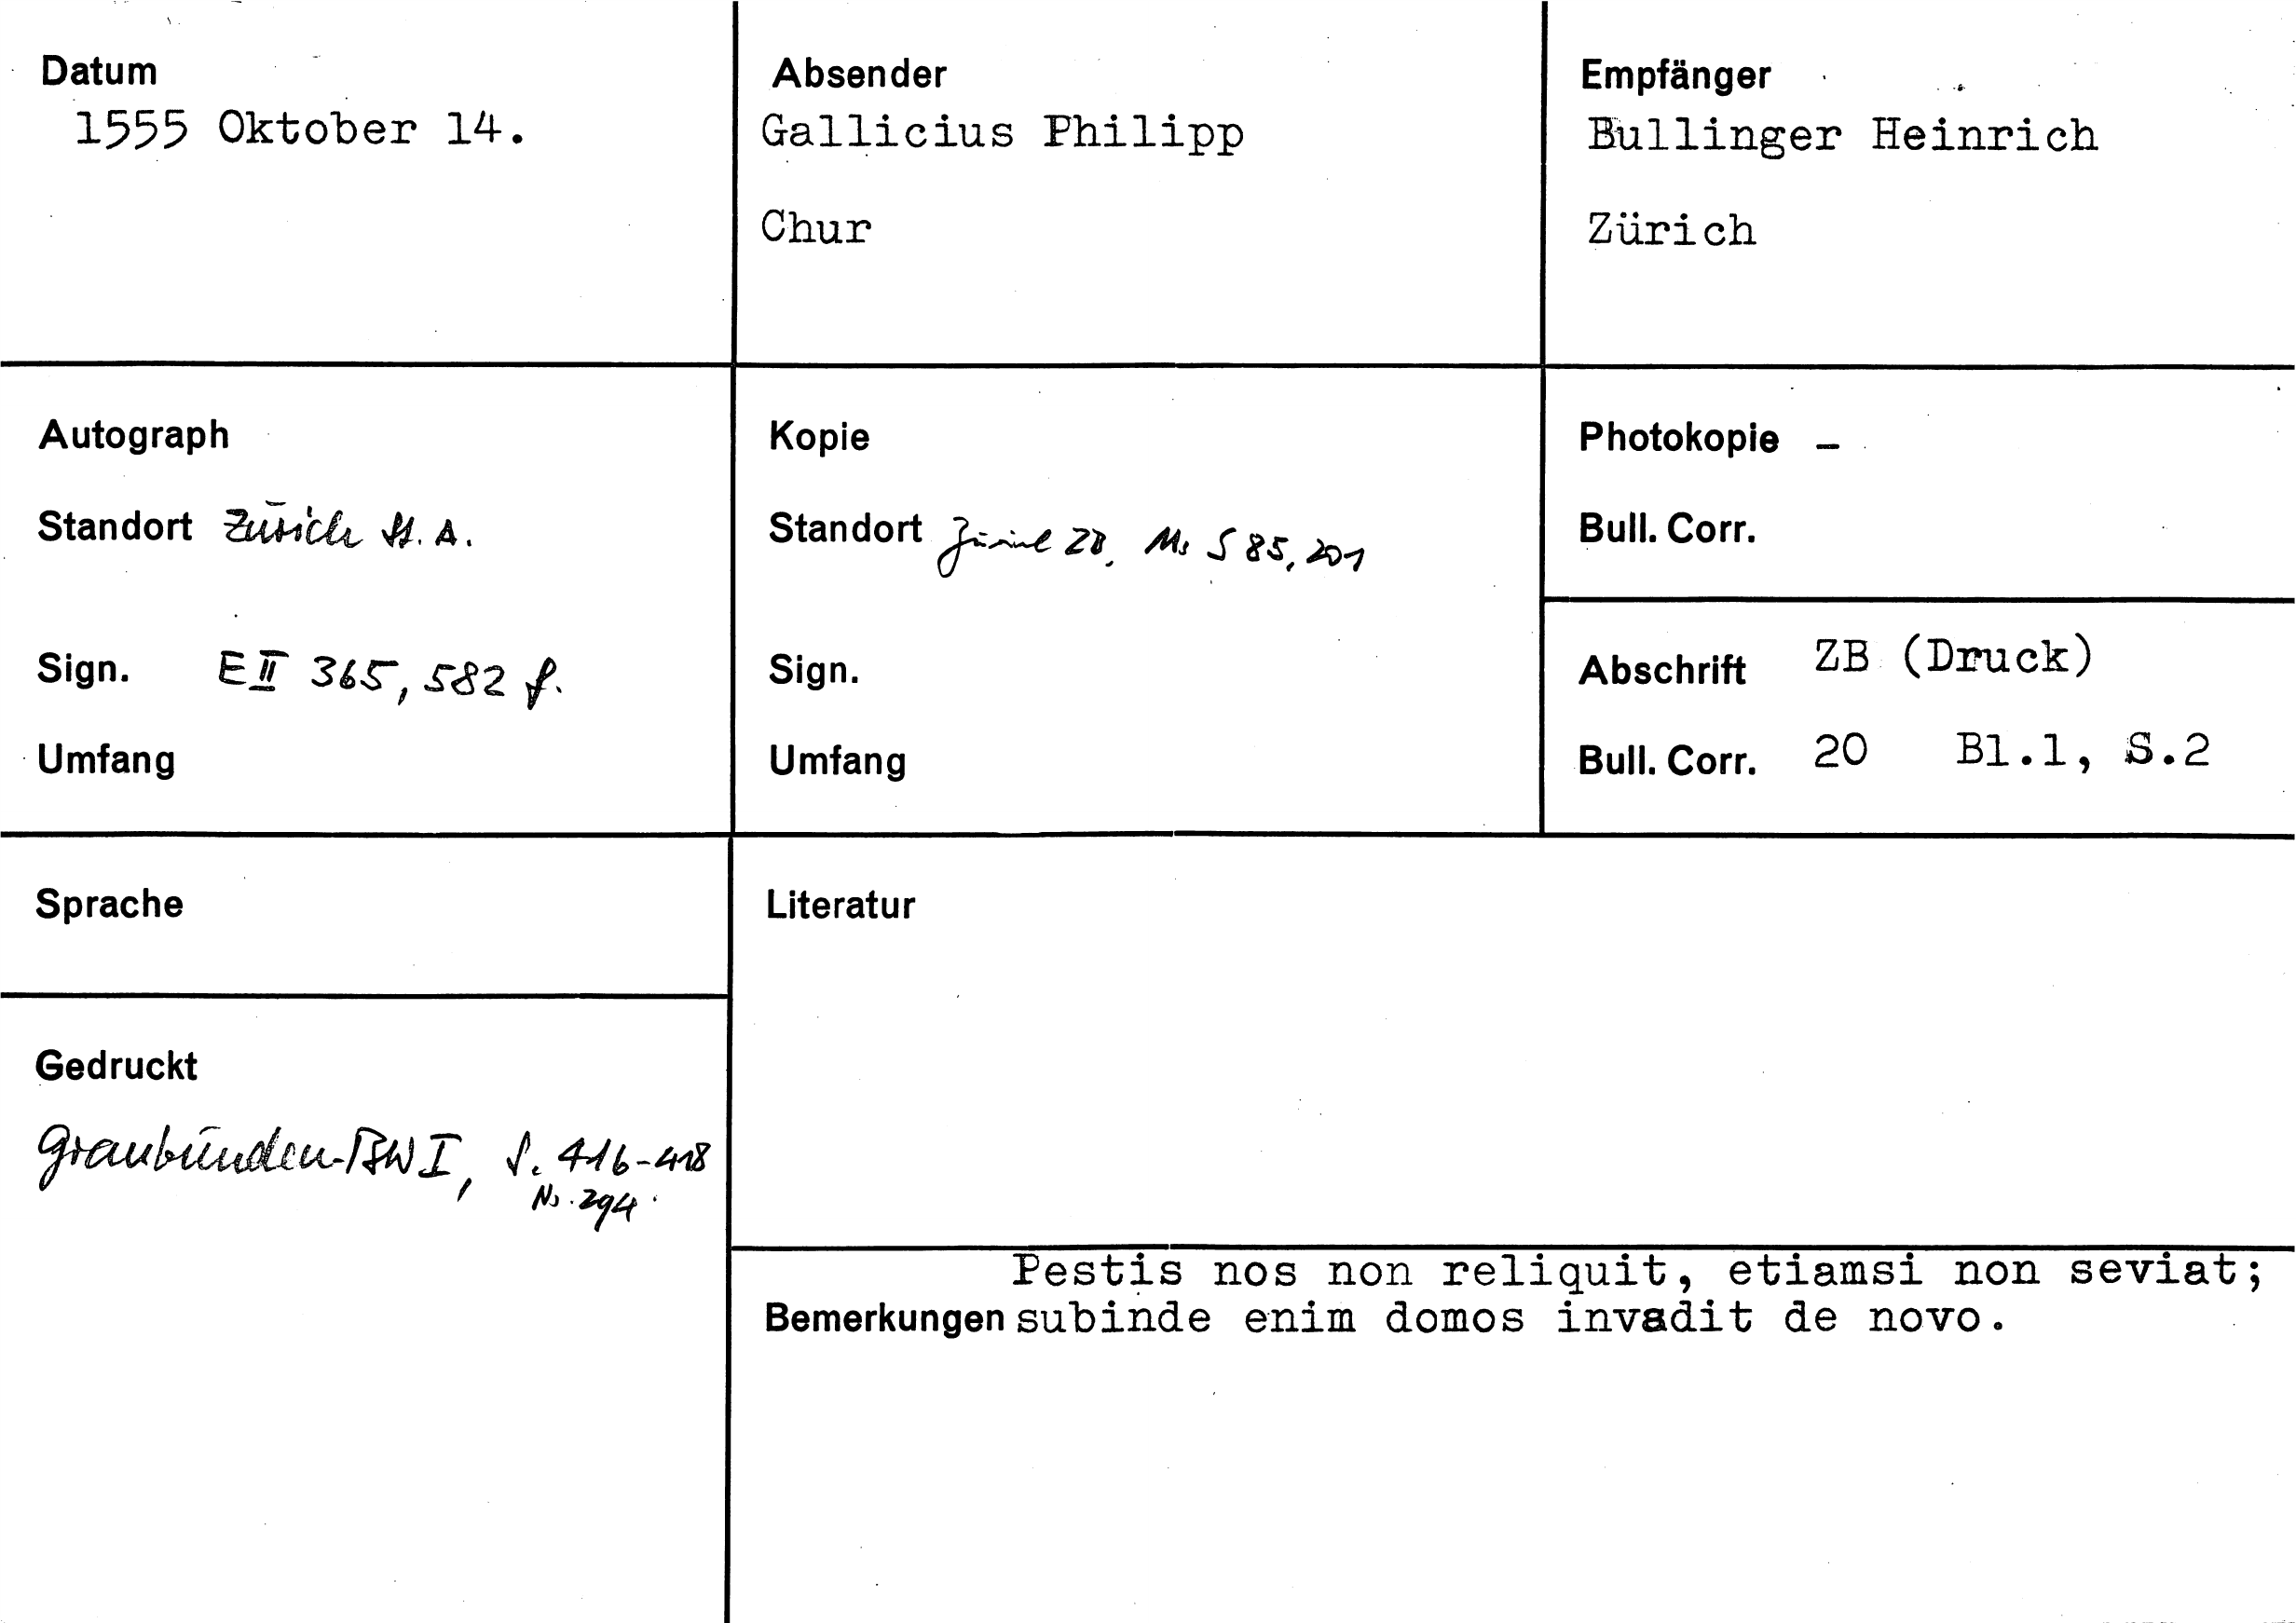 Datum
1555 Oktober 14.
Absender
Gallicius Philipp
Chur
Empfänger
Bullinger Heinrich
Zürich
Autograph
Standort Zürich St. A.
Sign. E II 365, 582 f.
Umfang
Kopie
Standort Zürich ZB, Ms S 85, 201
Sign.
Umfang
Photokopie –
Bull. Corr.
Abschrift ZB (Druck)
Bull. Corr. 20 Bl.1, S.2
Sprache
Gedruckt
Graubünden-BW I, S. 416-418
No. 294
Literatur
Pestis nos non reliquit, etiamsi non seviat;
Bemerkungen subinde enim domos invadit de novo.